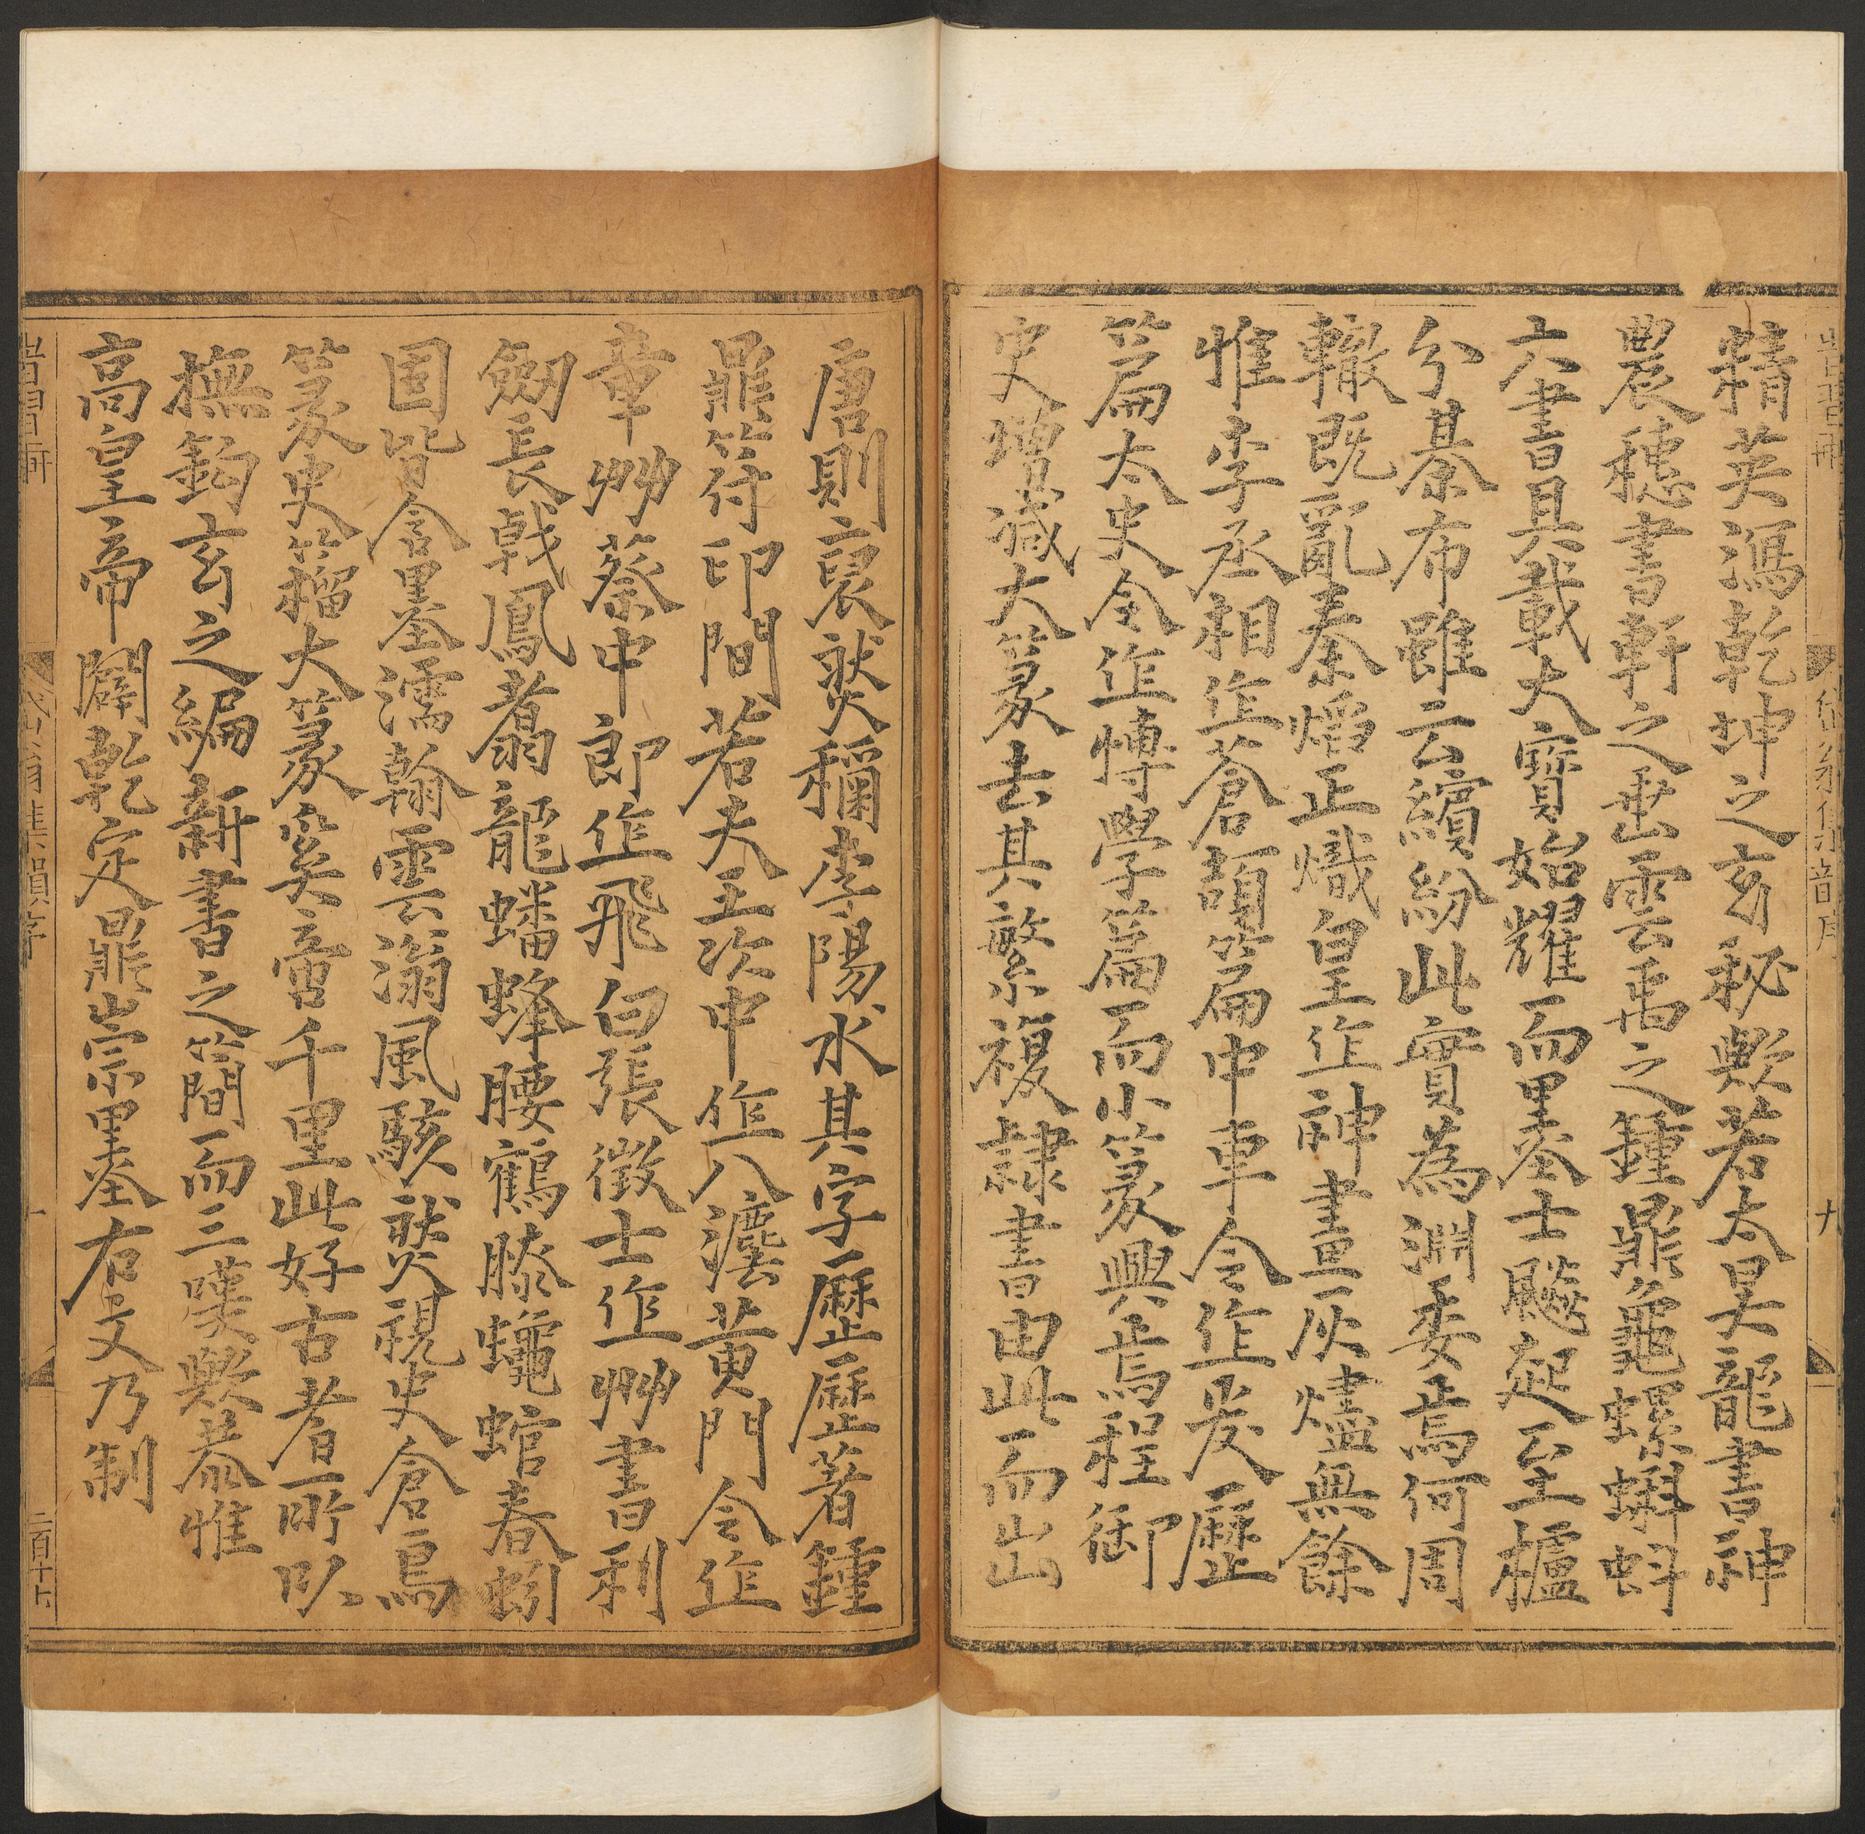 精英瀉乾坤之玄秘歟若太昊龍書神
農穗書軒之垂雲禹之鍾鼎龜螺蝌蚪
六書具載大寶始耀而墨士飈起至櫨
分棊布雖云繽紛此實為淵委焉何周
轍既亂秦熖正熾皇作神書灰燼無餘
惟李丞相作蒼頡篇中車令作爰歷
篇太史令作博學篇而小篆興焉程御
史增減大篆去其繁複隸書由此而出
唐則裒然稱李陽水其字歷歷著鍾
鼎符印間若夫王次中作八灋黃門令作
章艸蔡中郎作飛白張徵士作艸書利
劒長戟鳳翥龍蟠蜂腰鶴膝春蚓
固皆含墨濡翰雲滃風駭然視史倉鳥
篆史籀大篆奚啻千里此好古者所以
撫鈎玄之編新書之簡而三嘆歟恭惟
高皇帝闢乾定鼎崇墨右文乃制
二百十六